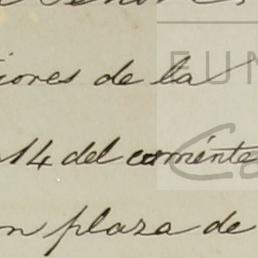 iores de la
14 del corriente
n plaza de
FUN